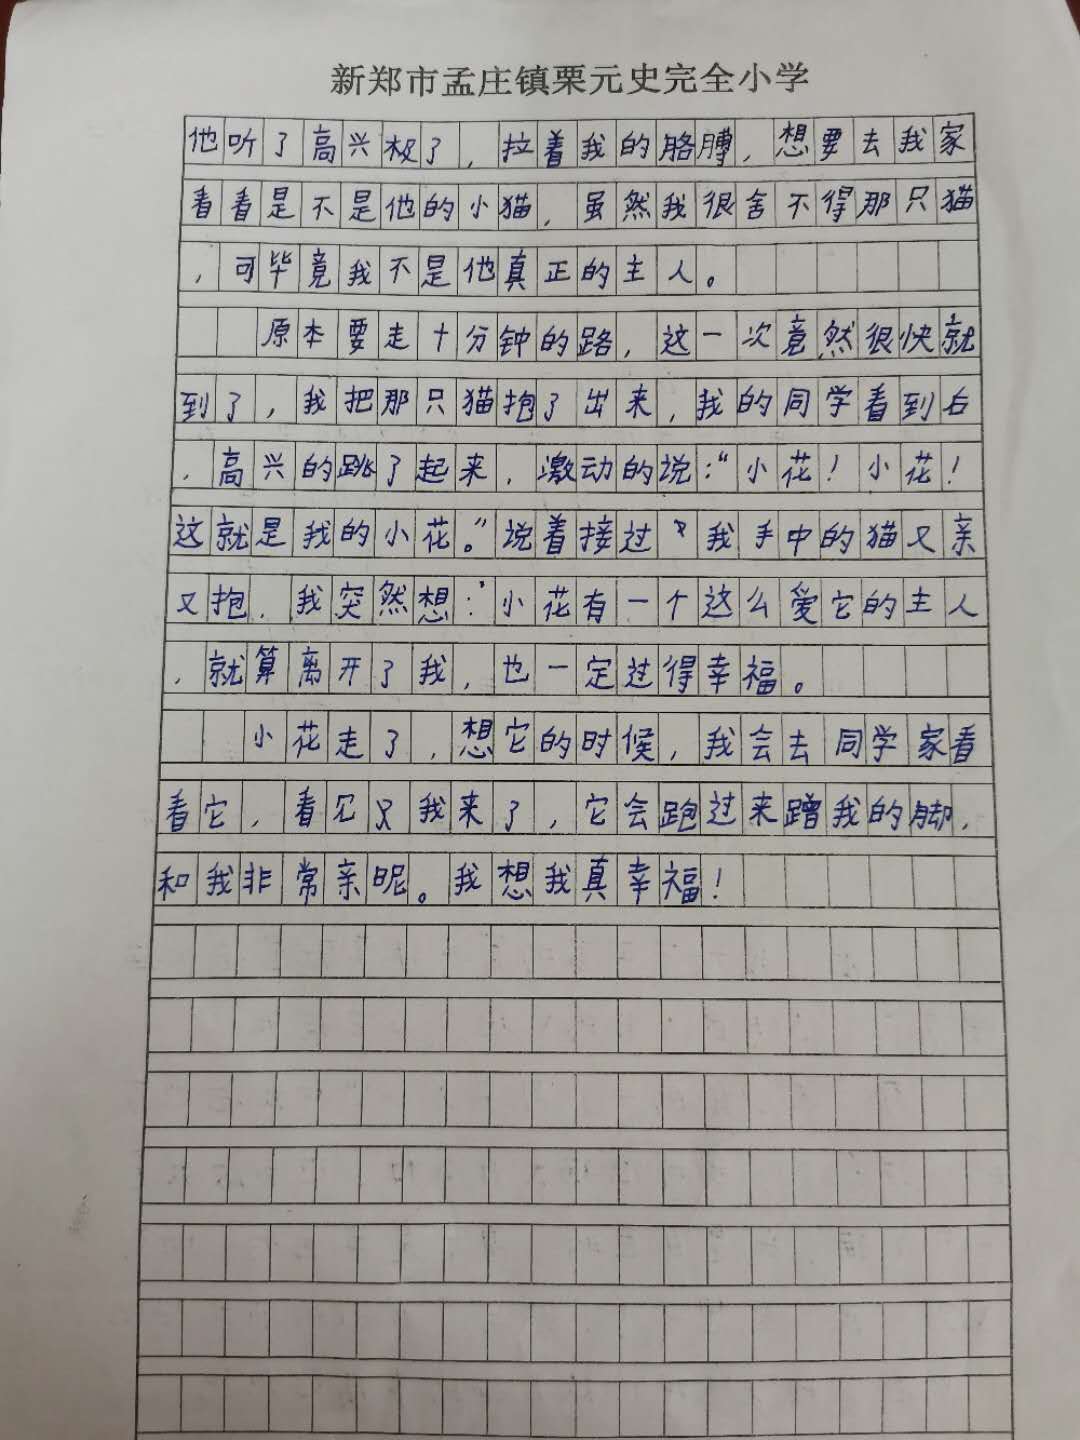 新郑市孟庄镇栗元史完全小学
他听了高兴极了，拉着我的胳膊，想要去我家
看看是不是他的小猫，虽然我很舍不得那只猫
，可毕竟我不是他真正的主人。
原本要走十分钟的路，这一次竟然很快就
到了，我把那只猫抱了出来，我的同学看到右
，高兴的跳了起来，激动的说：“小花！小花！
这就是我的小花。”说着接过我手中的猫又亲
又抱，我突然想：‘小花有一个这么爱它的主人
，就算离开了我，也一定过得幸福。
小花走了，想它的时候，我会去同学家看
看它，看见我来了，它会跑过来蹭我的脚，
和我非常亲昵。我想我真幸福！